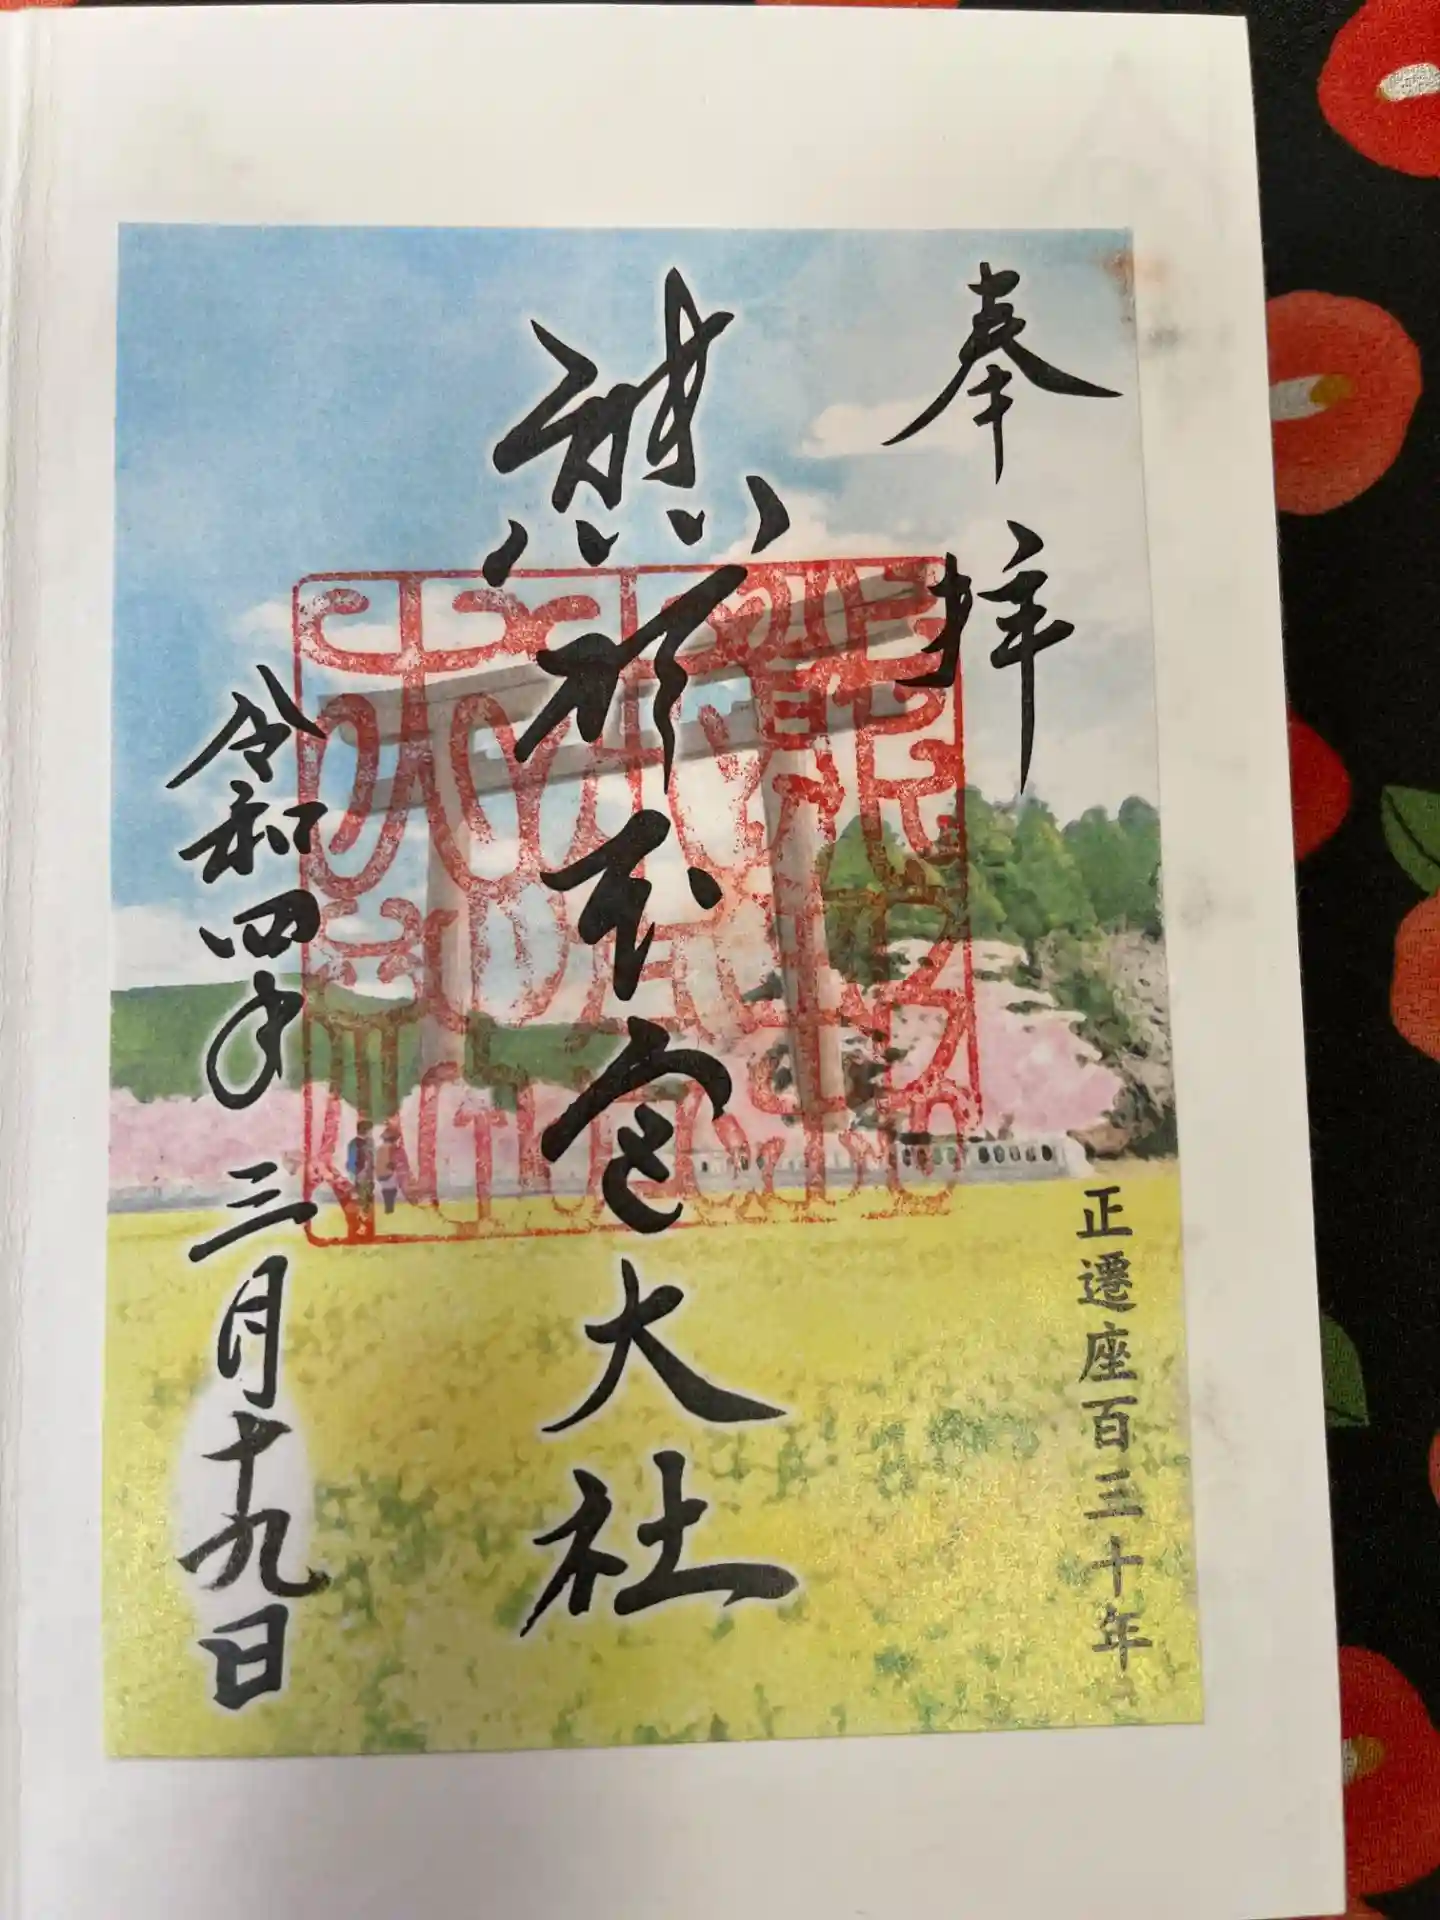 奉拝
正遷座百三十年
熊野本宮大社
令和四年三月十九日